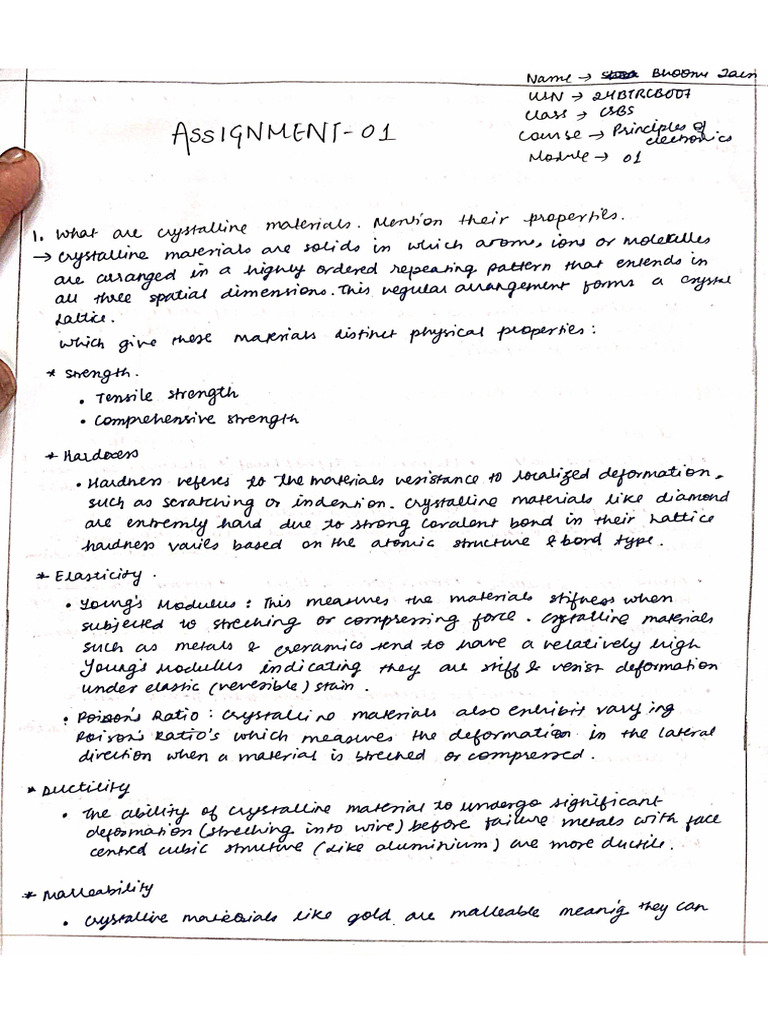 Name → Bhoomi Jain
USN → 24BTRCB007
Class → CSBS
Course → Principles of electronics
Module → 01
ASSIGNMENT-01
1. What are crystalline materials. Mention their properties.
→ Crystalline materials are solids in which atoms, ions or molecules
are arranged in a highly ordered repeating pattern that extends in
all three spatial dimensions. This regular arrangement forms a crystal
lattice.
which give these materials distinct physical properties:
* Strength.
• Tensile strength
• Comprehensive strength
* Hardness
• Hardness referes to the materials resistance to localized deformation,
such as scratching or indention. Crystalline materials like diamond
are extremly hard due to strong covalent bond in their lattice
hardness varies based on the atomic structure & bond type.
* Elasticity.
• Young's Modulus: This measures the materials stifness when
subjected to streching or compressing force. Crytalline materials
such as metals & creramics tend to have a relatively high
Young's Modulus indicating they are stiff & resist deformation
under elastic (reversible) stain.
• Poison's Ratio: Crystalline materials also exhibit varying
Poison's Ratio's which measures the deformation in the lateral
direction when a material is streched or compressed.
* Ductility
• The ability of crystalline material to undergo significant
deformation (streching into wire) before failure metals with face
centred cubic structure (like aluminium) are more ductile.
* Malleability
• Crystalline materials like gold are malleable meanig they can